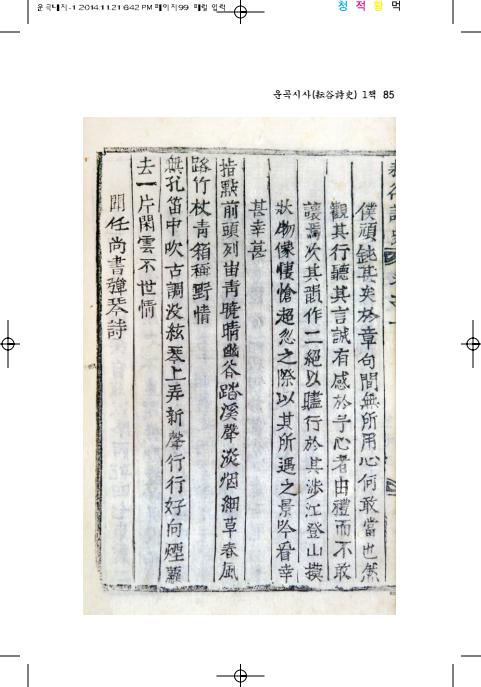 운곡시사-1 2014.11.21 6:42 PM 페이지99 메릴 입력
청 적 황 먹
운곡시사(耘谷詩史) 1책 85
僕頑鈍其矣於章句間無所用心何敢當也然
觀其行聽其言誠有感於予心者由禮而不敢
讓焉次其韻作二絕以贐行於其涉江登山摸
狀物像悽愴超忽之際以其所遇之景吟看幸
甚幸甚
指點前頭列岫靑曉晴幽谷踏溪聲淡烟細草春風
路竹杖靑鞋稱野情
無孔笛中吹古調沒絃琴上弄新聲行行好向煙蘿
去一片閑雲不世情
聞任尙書彈琴詩